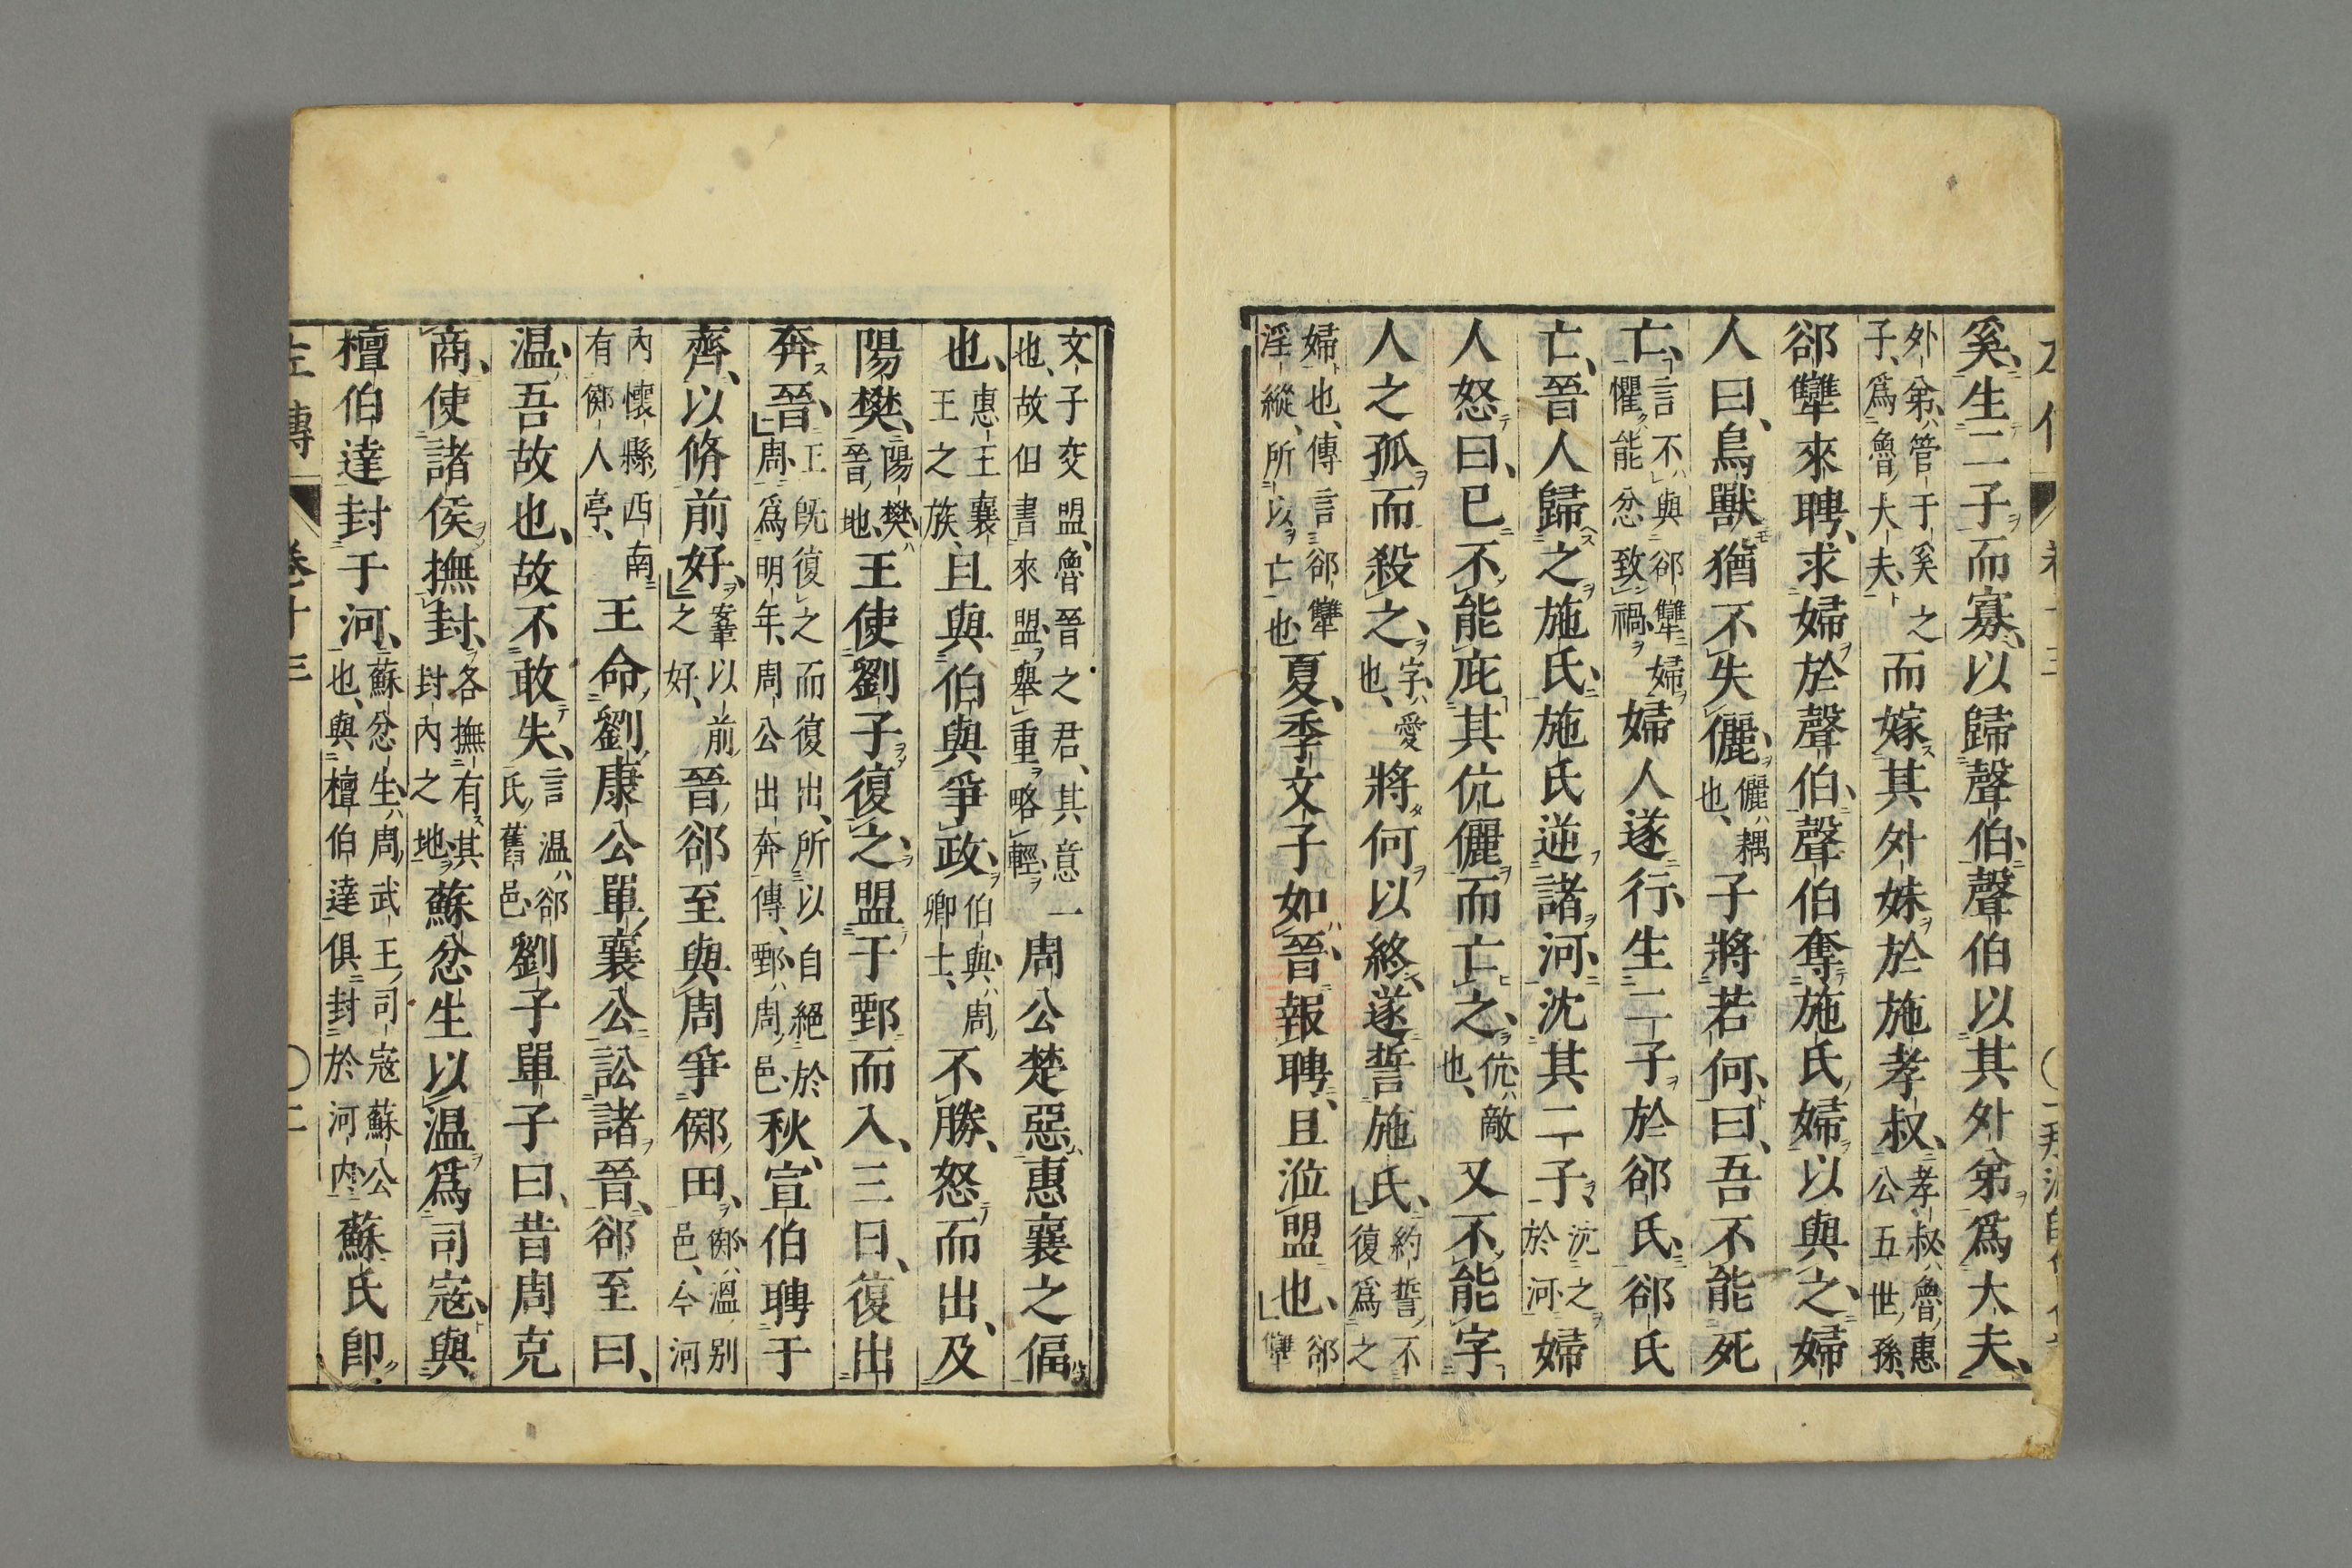 奚、生二子而寡、以歸聲伯、聲伯以其外弟爲大夫、
外弟、管于奚之子、爲魯大夫、而嫁其外妹於施孝叔、孝叔魯惠公五世孫、
郤犨來聘、求婦於聲伯、聲伯奪施氏婦以與之、婦
人曰、鳥獸猶不失儷、儷耦也、子將若何、曰、吾不能死
亡、言不與郤犨婦懼能忿致禍婦人遂行、生二子於郤氏、郤氏
亡、晉人歸之施氏、施氏逆諸河、沈其二子、沈之於河婦
人怒曰、已不能庇其伉儷而亡之、伉敵也、又不能字
人之孤而殺之、字愛也、將何以終、遂誓施氏、約誓不復爲之
婦也、傳言郤犨淫縱、所以亡也、夏、季文子如晉、報聘、且涖盟也、郤犨
文子交盟、魯晉之君、其意一也、故但書來盟、舉重略輕周公楚惡惠襄之偪
也、惠王襄王之族、且與伯與爭政、伯與周卿士、不勝、怒而出、及
陽樊、陽樊晉地、王使劉子復之、盟于鄄而入、三日、復出
奔晉、王既復之而復出、所以自絕於周、爲明年、周公出奔傳、鄄周邑、秋、宣伯聘于
齊、以脩前好、鞌以前之好、晉郤至與周爭鄇田、鄇溫別邑、今河
內懷縣西南有鄇人亭、王命劉康公單襄公訟諸晉、郤至曰、
温、吾故也、故不敢失、言温郤氏舊邑、劉子單子曰、昔周克
商、使諸侯撫封、各撫有其封內之地、蘇忿生以温爲司寇、與
檀伯達封于河、蘇忿生周武王司寇蘇公也、與檀伯達俱封於河內蘇氏卽
左傳 卷十三 〇二